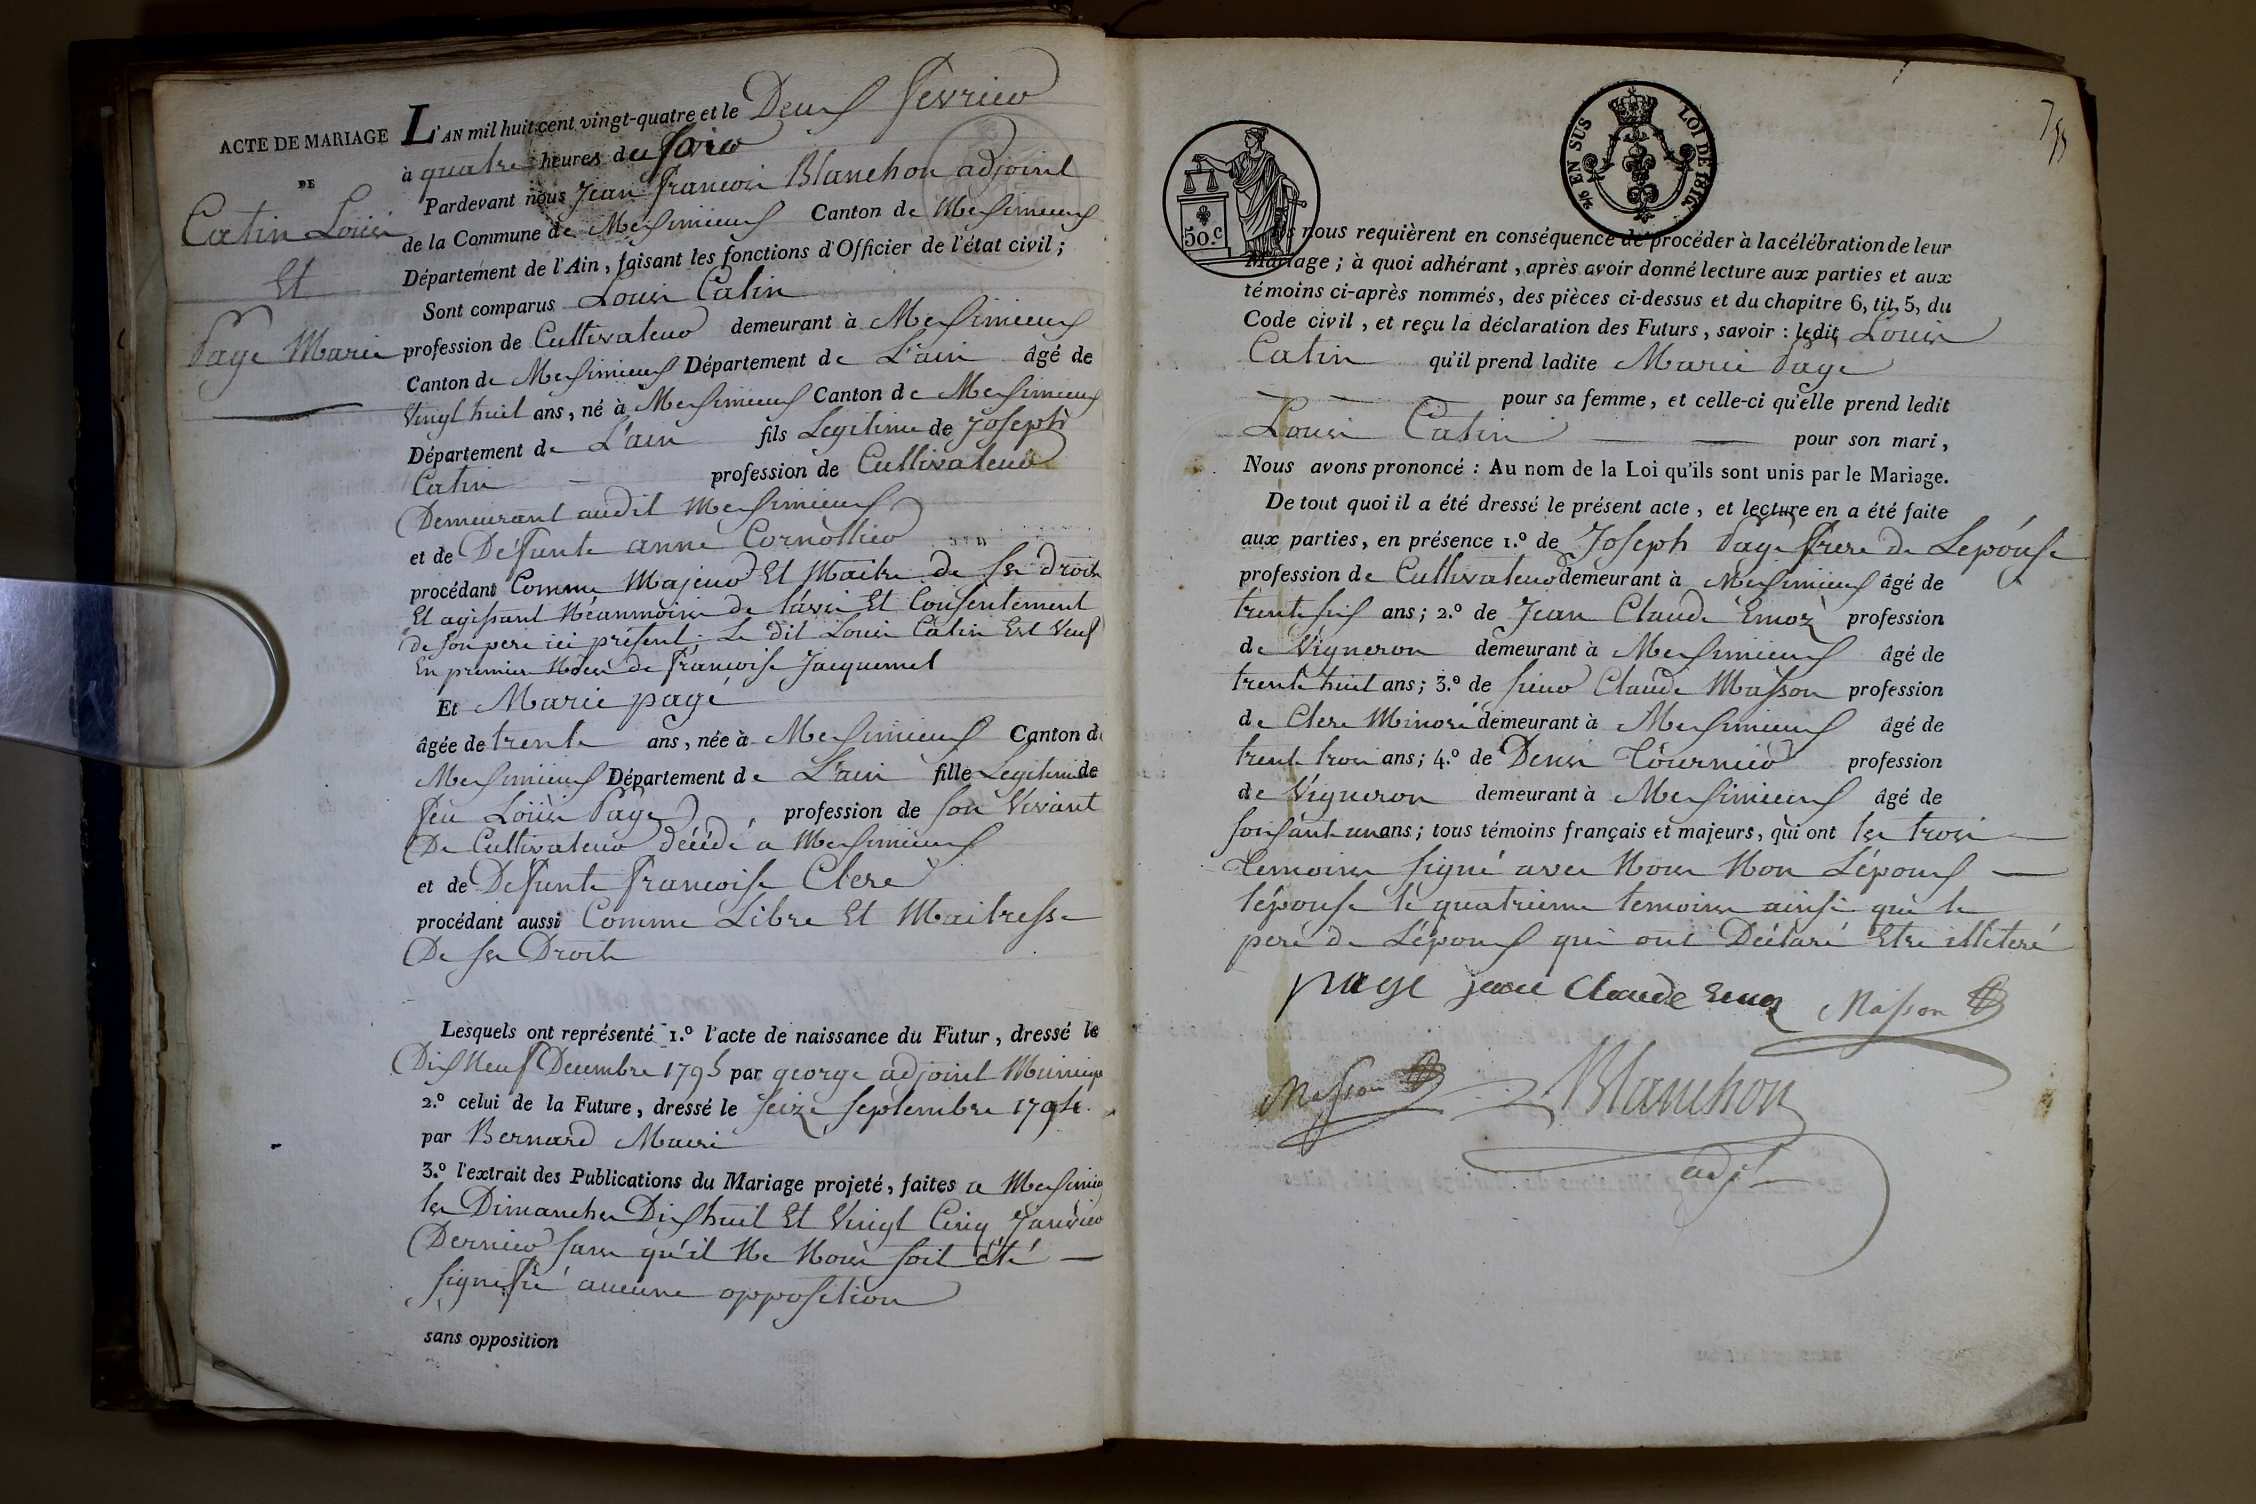 ACTE DE MARIAGE
DE
Catin Louis
Et
Page Marie
L'AN mil huit cent vingt-quatre et le Deux fevrier
à quatre heures du soire
Pardevant nous Jean françois Blanchon adjoint
de la Commune de Messimieux Canton de Messimieux
Département de l'Ain, faisant les fonctions d'Officier de l'état civil;
Sont comparus Louis Catin
profession de Cultivateur demeurant à Messimieux
Canton de Messimieux Département de L'ain âgé de
Vingt huit ans, né à Messimieux Canton de Messimieux
Département de L'ain fils Legitime de Joseph
Catin profession de Cultivateur
Demeurant audit Messimieux
et de Défunte anne Cornollier
procédant Comme Majeur Et Maitre de ses droits
Et agissant Néanmoins de lávis Et Consentement
de son pere ici présent. Le dit Louis Catin Est Veuf
En premier Noces de françoise Jacquemet
Et Marie page
âgée de trente ans, née à Messimieux Canton de
Messimieux Département de L'ain fille Legitime de
feu Loüis Page, profession de son Vivant
De Cultivateur décédé a Messimieux
et de Defunte françoise Clerc
procédant aussi Comme Libre Et Maitresse
De ses Droits
Lesquels ont représenté 1.º l'acte de naissance du Futur, dressé le
Dix Neuf Decembre 1795 par george adjoint Municipa
2.º celui de la Future, dressé le seize septembre 1794
par Bernard Maire
3.º l'extrait des Publications du Mariage projeté, faites a Messimieu
les Dimanches Dix huit Et Vingt Cinq Janvier
Dernier sans qu'il Ne Nous soit été
signifié aucune opposition
sans opposition
2/5 EN SUS LOI DE 1816.
50.c
Ils nous requièrent en conséquence de procéder à la célébration de leur
Mariage; à quoi adhérant, après avoir donné lecture aux parties et aux
témoins ci-après nommés, des pièces ci-dessus et du chapitre 6, tit. 5, du
Code civil, et reçu la déclaration des Futurs, savoir: ledit Louis
Catin qu'il prend ladite Marie Page
pour sa femme, et celle-ci qu'elle prend ledit
Louis Catin pour son mari,
Nous avons prononcé: Au nom de la Loi qu'ils sont unis par le Mariage.
De tout quoi il a été dressé le présent acte, et lecture en a été faite
aux parties, en présence 1.º de Joseph Page frere de Lepouse
profession de Cultivateur demeurant à Messimieux âgé de
trente six ans; 2.º de Jean Claude Emoz profession
de Vigneron demeurant à Messimieux âgé de
trente huit ans; 3.º de sieur Claude Masson profession
de Clerc Minoré demeurant à Messimieux âgé de
trente trois ans; 4.º de Denis Tournier profession
de Vigneron demeurant à Messimieux âgé de
soixante un ans; tous témoins français et majeurs, qui ont les trois
temoins signé avec Nous Non Lépoux
lépouse le quatrieme temoins ainsi que le
pere de Lépoux qui ont Déclaré Etre illiteré
page jean Claude Emoz Masson
Masson Blanchon
adj.t